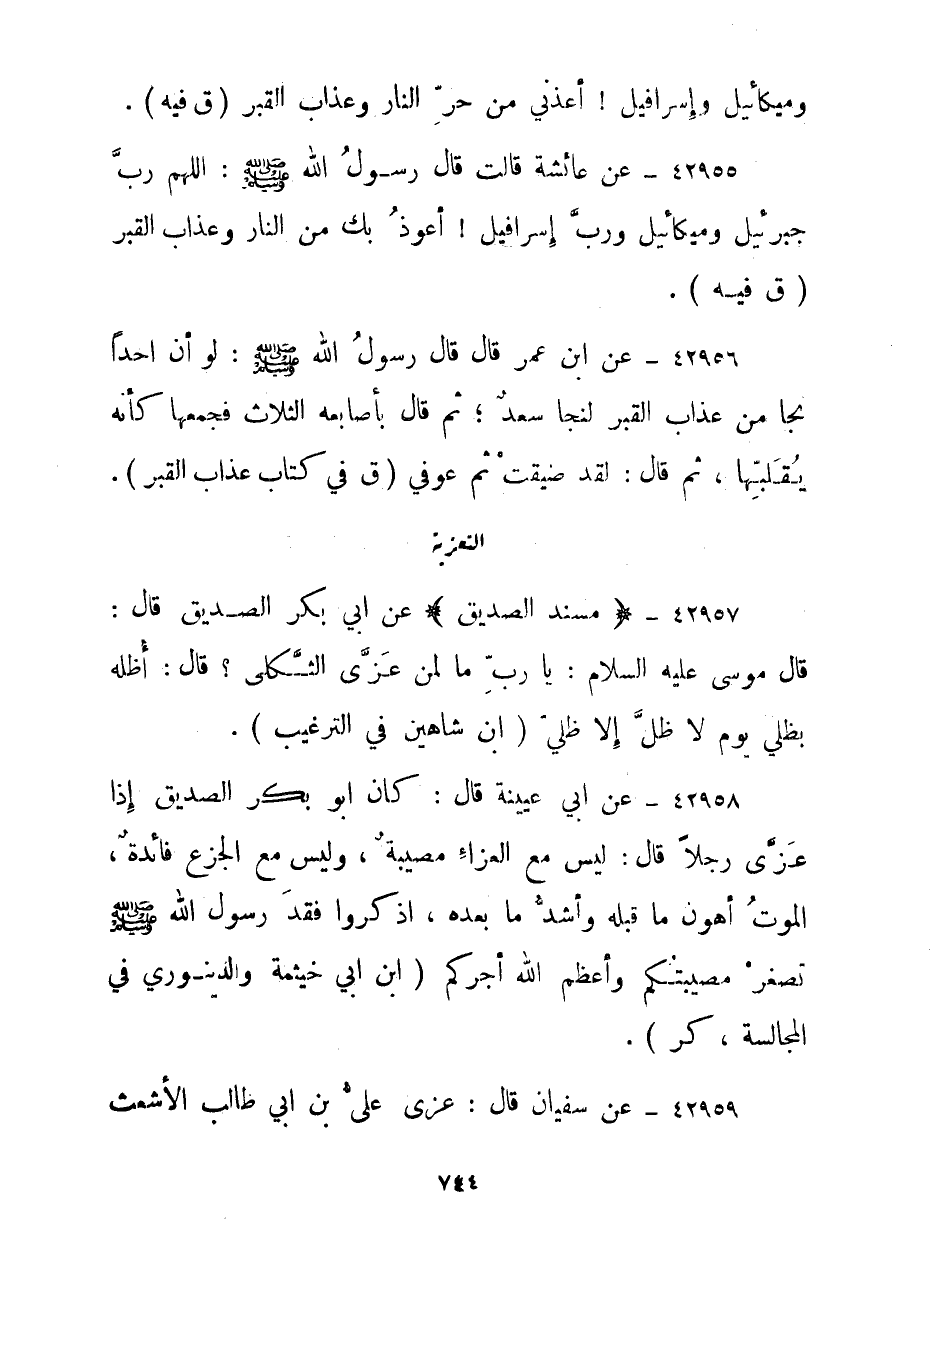 وميكائيل وإسرافيل ! أعذني من حرِّ النار وعذاب القبر ( ق فيه ) .
٤٢٩٥٥ ـ عن عائشة قالت قال رسـولُ الله ﷺ : اللهم ربَّ
جبرئيل وميكائيل وربَّ إسرافيل ! أعوذُ بك من النار وعذاب القبر
( ق فيـه ) .
٤٢٩٥٦ ـ عن ابن عمر قال قال رسولُ الله ﷺ : لو أن احداً
نجا من عذاب القبر لنجا سعدٌ ؛ ثم قال بأصابعه الثلاث فجمعها كأنه
يُقَلِّبُها ، ثم قال : لقد ضيقتْ ثم عوفي ( ق في كتاب عذاب القبر ) .
التعزية
٤٢٩٥٧ ـ ﴿ مسند الصديق ﴾ عن ابي بكر الصـديق قال :
قال موسى عليه السلام : يا ربِّ ما لمن عَزَّى الثَّـكلى ؟ قال : أُظله
بظلي يوم لا ظلَّ إلا ظليّ ( ابن شاهين في الترغيب ) .
٤٢٩٥٨ ـ عن ابي عيينة قال : كان ابو بكر الصديق إذا
عَزَّى رجلاً قال : ليس مع العزاءِ مصيبةٌ ، وليس مع الجزع فائدةٌ ،
الموتُ أهون ما قبله وأشدُّ ما بعده ، اذكروا فقدَ رسول الله ﷺ
تصغرْ مصيبتُـكم وأعظم الله أجركم ( ابن ابي خيثمة والدينـوري في
المجالسة ، كر ) .
٤٢٩٥٩ ـ عن سفيان قال : عزى عليُّ بن ابي طالب الأشعث
٧٤٤